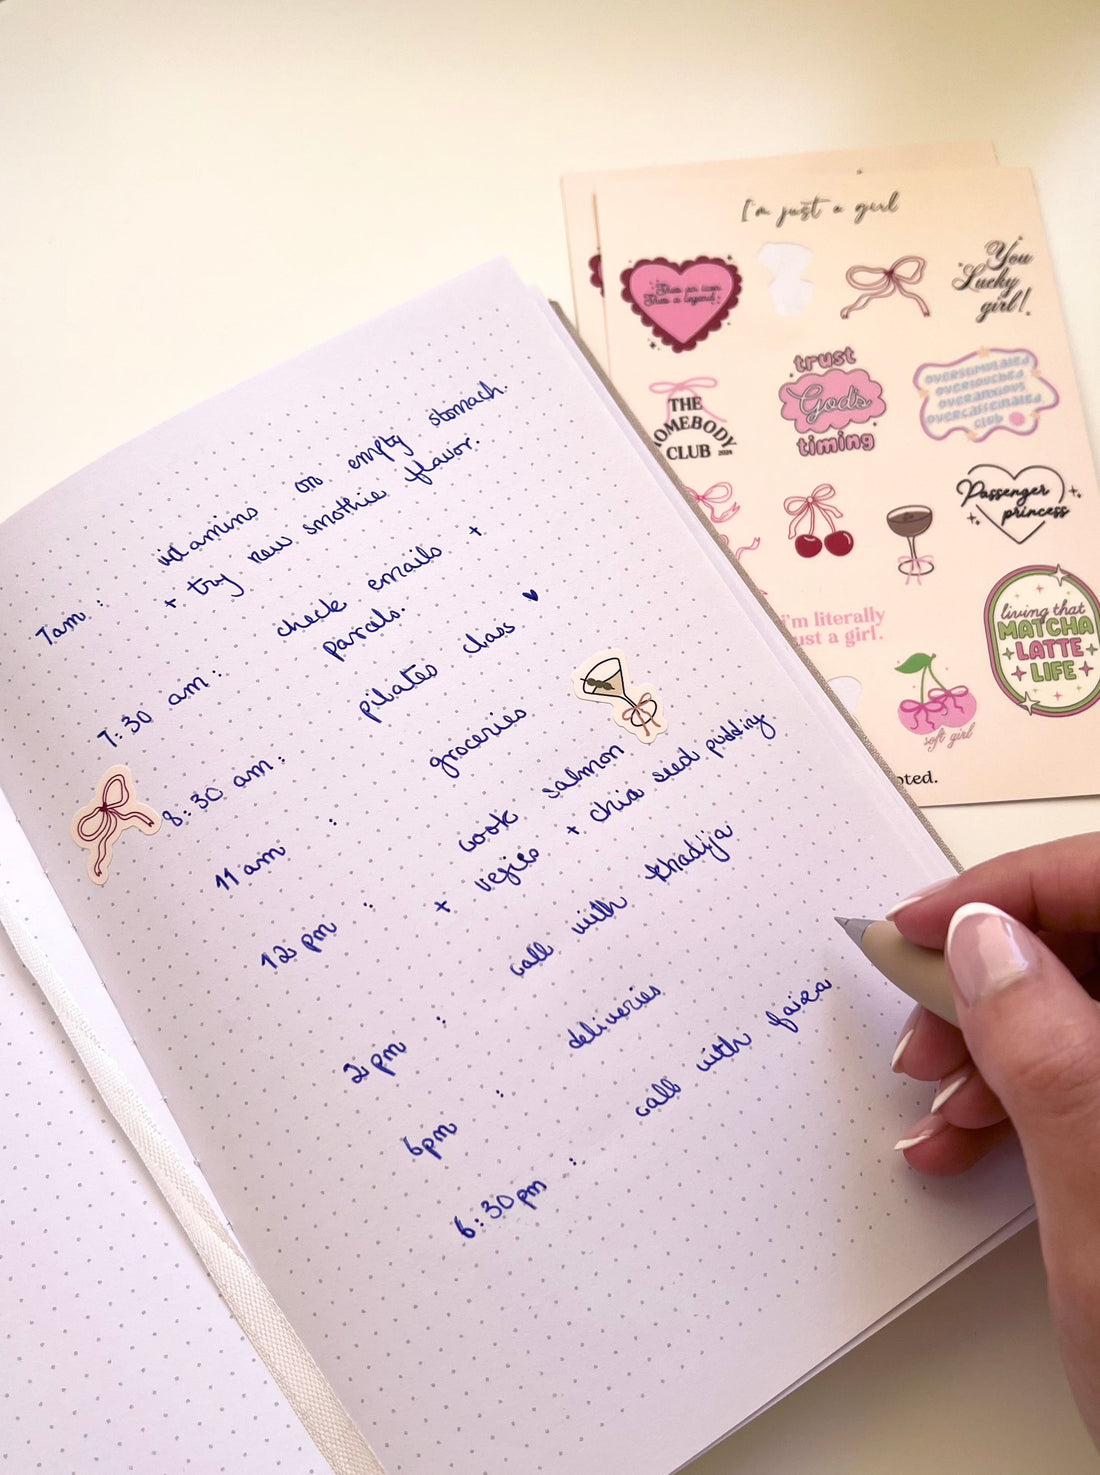 7am : vitamins on empty stomach.
+ try new smothie flavor.
7:30 am : check emails +
parcels.
8:30 am : pilates class ♥
11 am : groceries
12 pm : cook salmon
+ vejies + chia seed pudding
2pm : call with khadija
6pm : deliveries
6:30pm : call with faiza
I'm just a girl
She's an icon
She's a legend
You
Lucky
girl!
THE
HOMEBODY
CLUB
trust
God's
timing
OVERSTIMULATED
OVERTOUCHED
OVERANXIOUS
OVERCAFFEINATED
CLUB
Passenger
princess
i'm literally
just a girl.
living that
MATCHA
LATTE
LIFE
soft girl